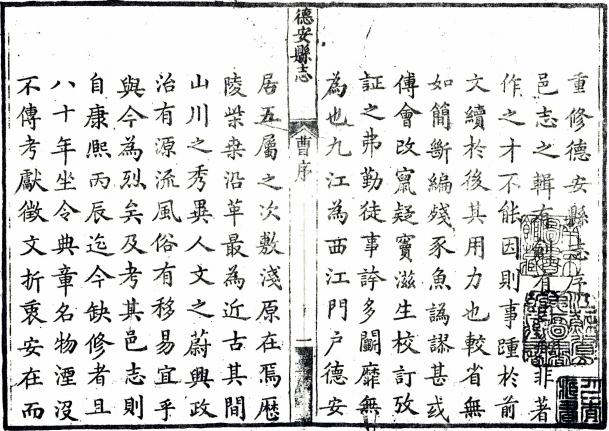 重修德安縣志序
邑志之輯有難有非著
作之才不能因則事踵於前
文續於後其用力也較省無
如簡斷編殘豕魚譌謬甚或
傅會改竄疑竇滋生校訂攷
証之弗勤徒事誇多鬬靡無
為也九江為西江門户德安
德安縣志
曹序
一
居五屬之次敷淺原在焉歷
陵柴桑沿革最為近古其間
山川之秀異人文之蔚興政
治有源流風俗有移易宜乎
與今為烈矣及考其邑志則
自康熙丙辰迄今缺修者且
八十年坐令典章名物湮沒
不傳考獻徵文折衷安在而